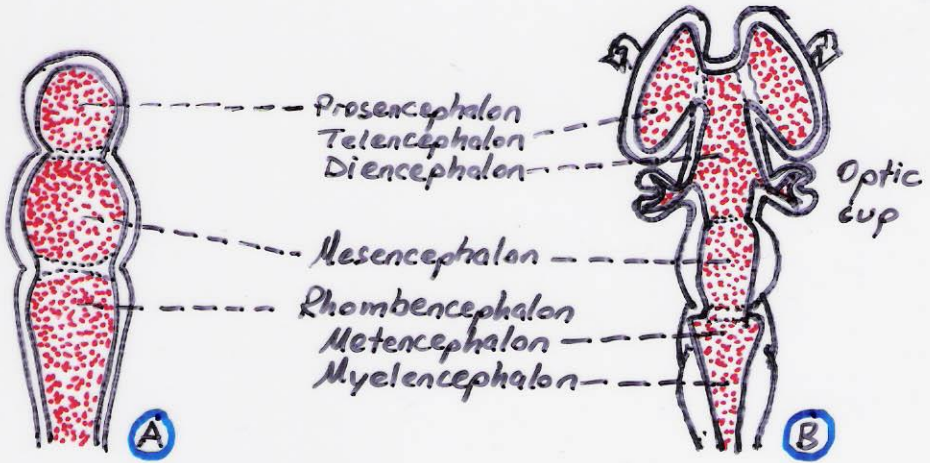 Prosencephalon
Telencephalon
Diencephalon
Optic
cup
Mesencephalon
Rhombencephalon
Metencephalon
Myelencephalon
A
B